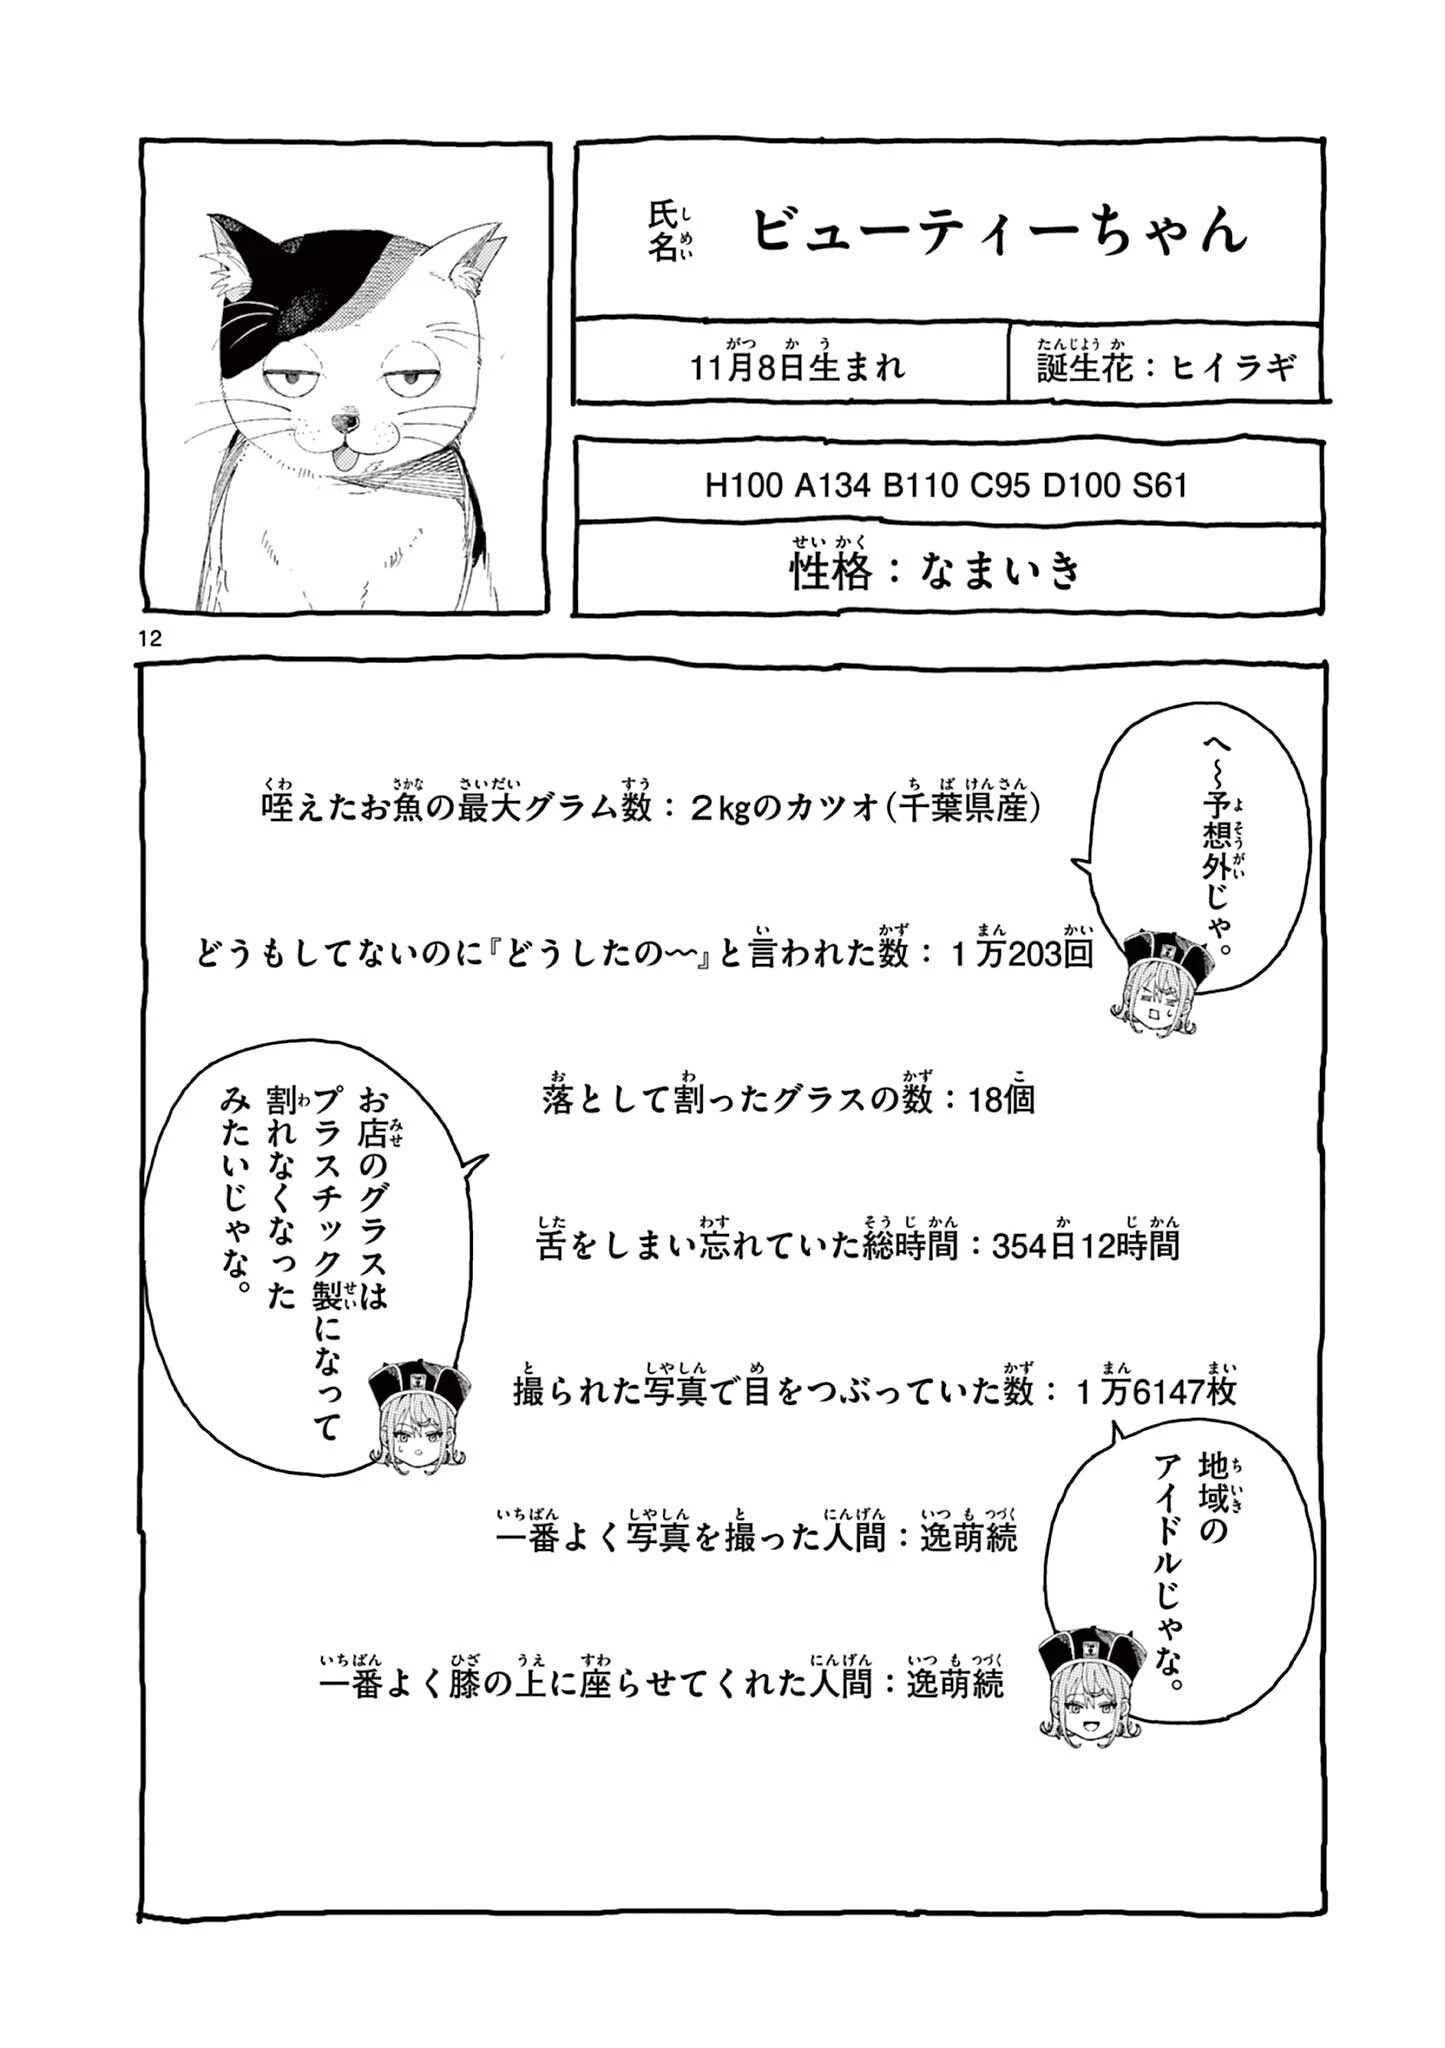 氏名 ビューティーちゃん
11月8日生まれ
誕生花：ヒイラギ
H100 A134 B110 C95 D100 S61
性格：なまいき
12
咥えたお魚の最大グラム数：２kgのカツオ(千葉県産)
へ〜予想外じゃ。
どうもしてないのに『どうしたの〜』と言われた数：１万203回
落として割ったグラスの数：18個
お店のグラスは
プラスチック製になって
割れなくなった
みたいじゃな。
舌をしまい忘れていた総時間：354日12時間
撮られた写真で目をつぶっていた数：１万6147枚
地域の
アイドルじゃな。
一番よく写真を撮った人間：逸萌続
一番よく膝の上に座らせてくれた人間：逸萌続